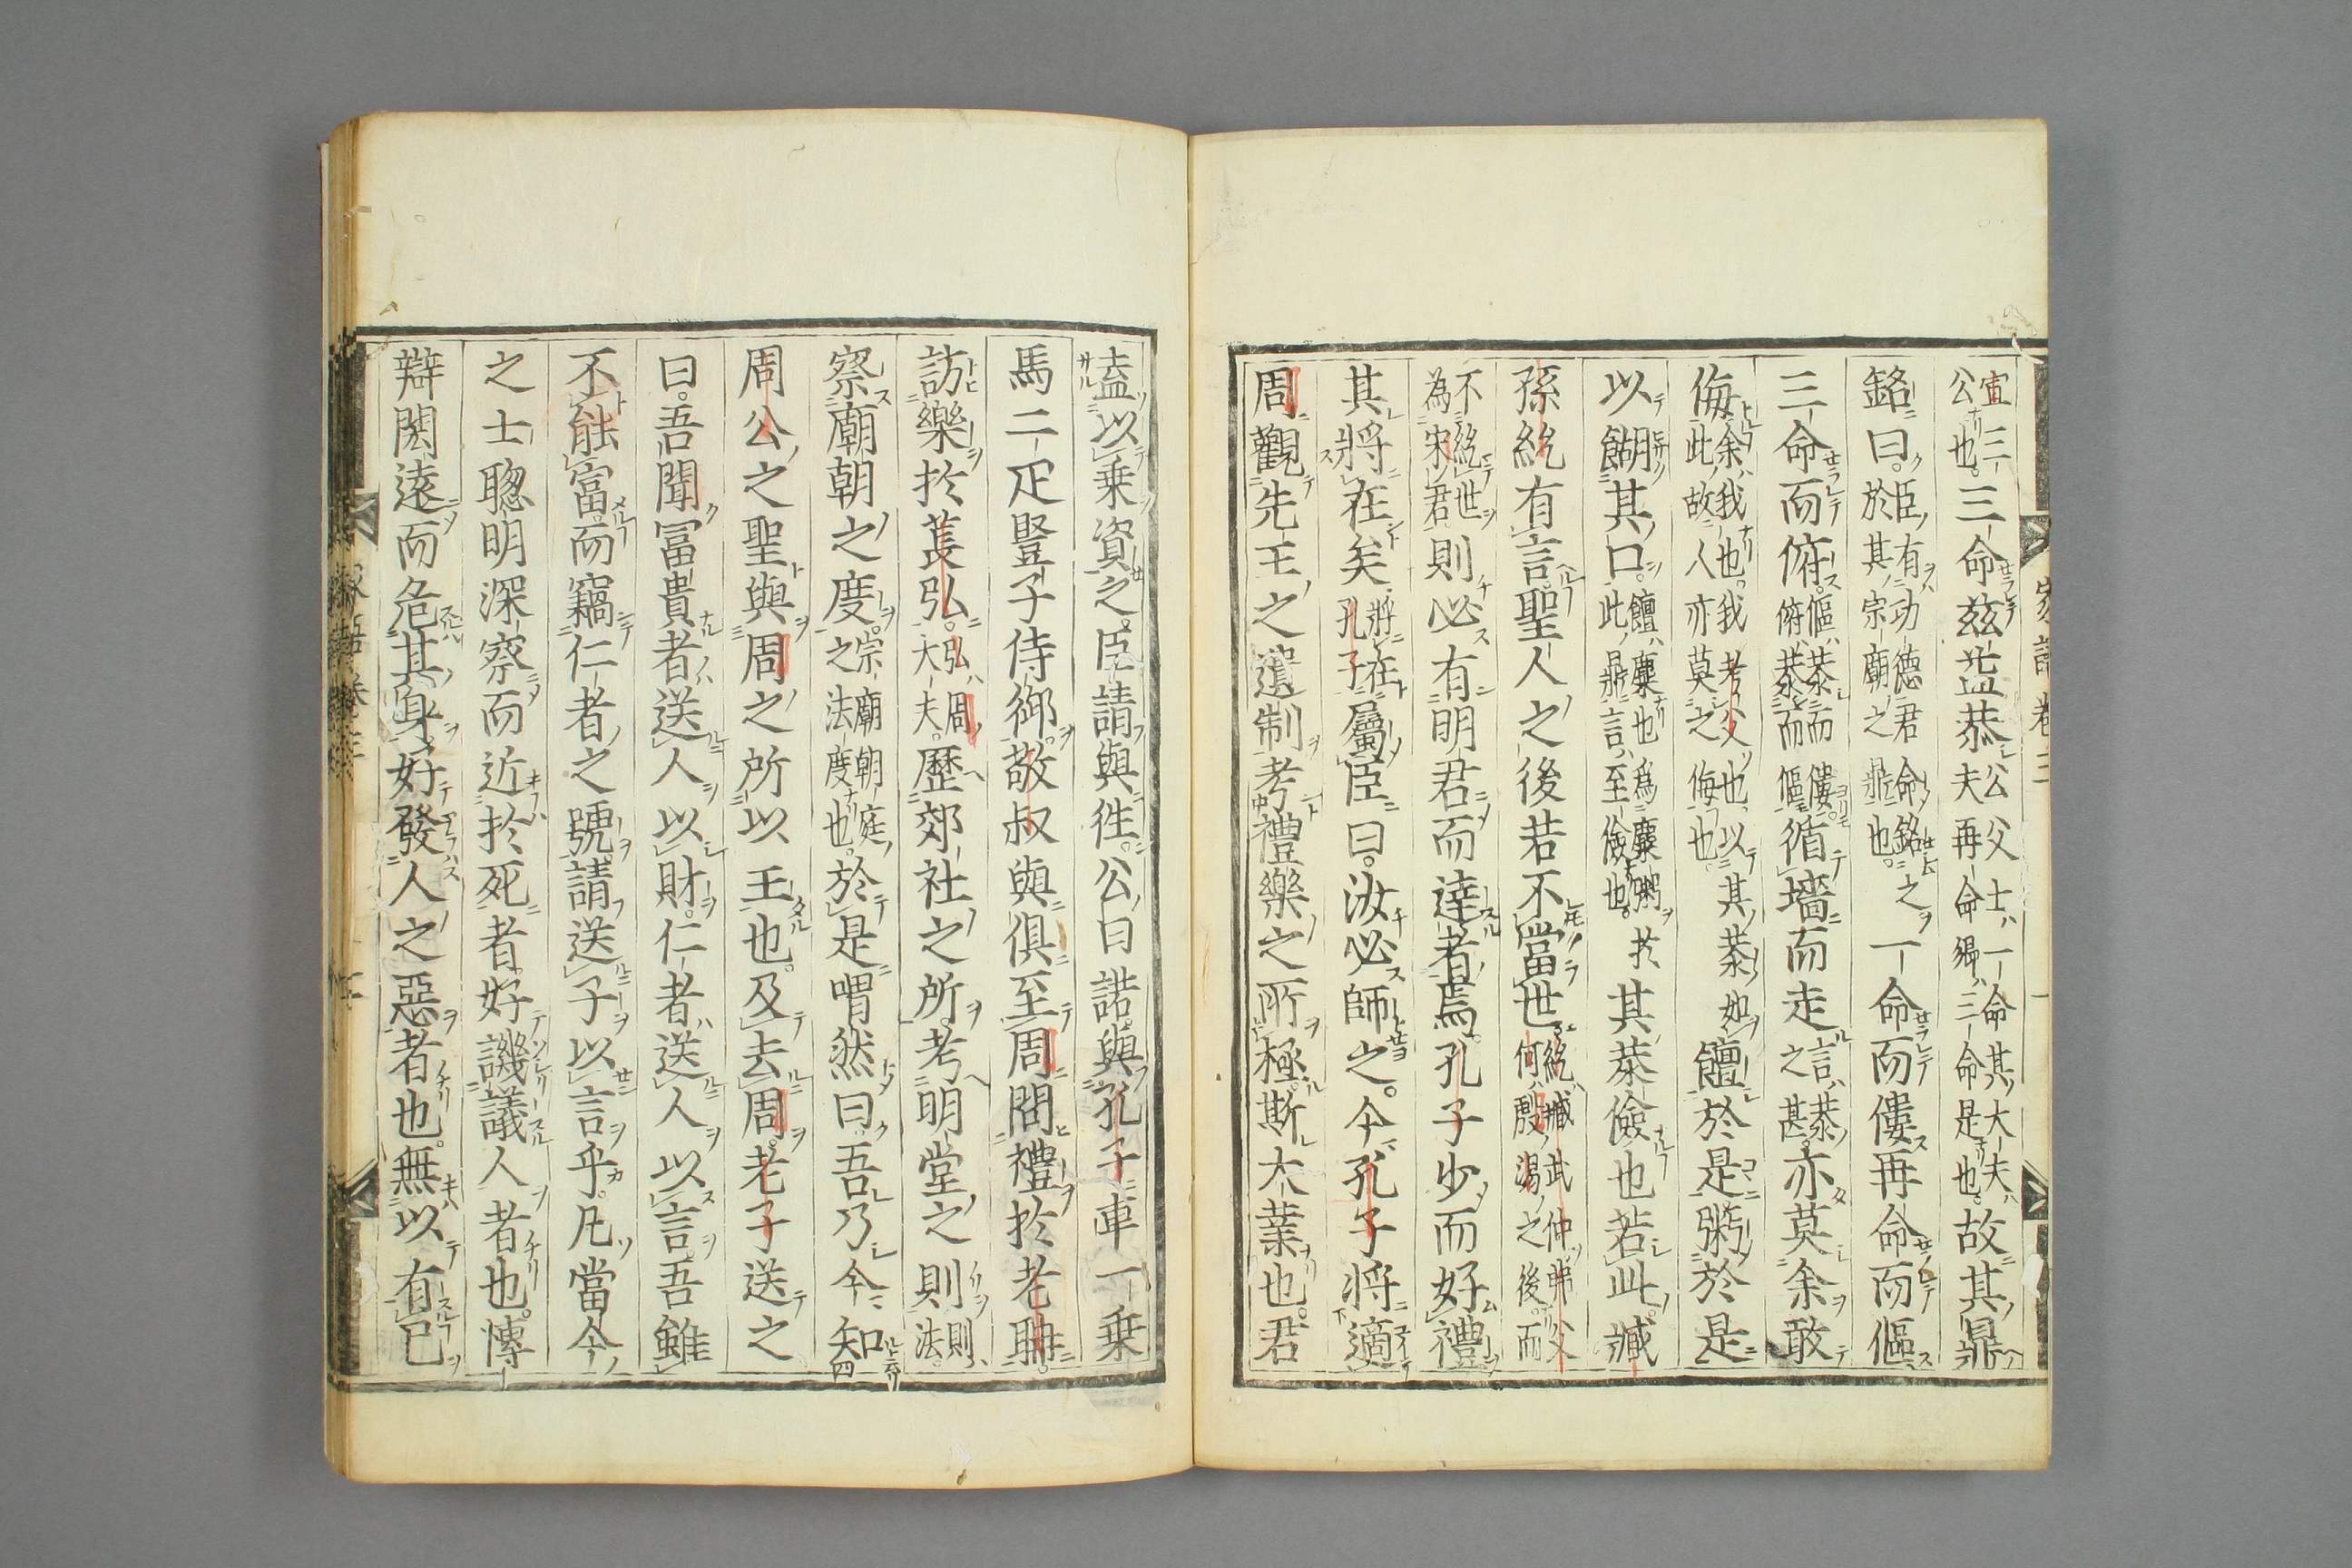 宣三公也三命茲益恭公父士一命其大夫夫再命卿三命是也故其鼎
銘曰臣有功德君命銘之於其宗廟之鼎也一命而僂再命而傴
三命而俯傴恭而僂俯恭而傴循墻而走言恭之甚亦莫余敢
侮余我也我考父也以其恭如此故人亦莫之侮也饘於是粥於是
以餬其口饘麋也爲麋粥此鼎言至儉也於其恭儉也若此臧
孫紇有言聖人之後若不當世紇臧武仲弟父何殷湯之後而
不紇世為宋君則必有明君而達者焉孔子少而好禮
其將在矣將在孔子屬臣曰汝必師之今孔子将適
周觀先王之遺制考禮樂之所極斯大業也君
家語卷三
盍以乗資之臣請與徃公曰諾與孔子車一乗
馬二疋豎子侍御敬叔與俱至周問禮於老聃
訪樂於萇弘弘周大夫歷郊社之所考明堂之則則法
察廟朝之度宗廟朝庭之法度也於是喟然曰吾乃今知
周公之聖與周之所以王也及去周老子送之
曰吾聞冨貴者送人以財仁者送人以言吾雖
不能富而竊仁者之號請送子以言乎凡當今
之士聰明深察而近於死者好譏議人者也博
辯閎遠而危其身好發人之惡者也無以有己
家語卷三